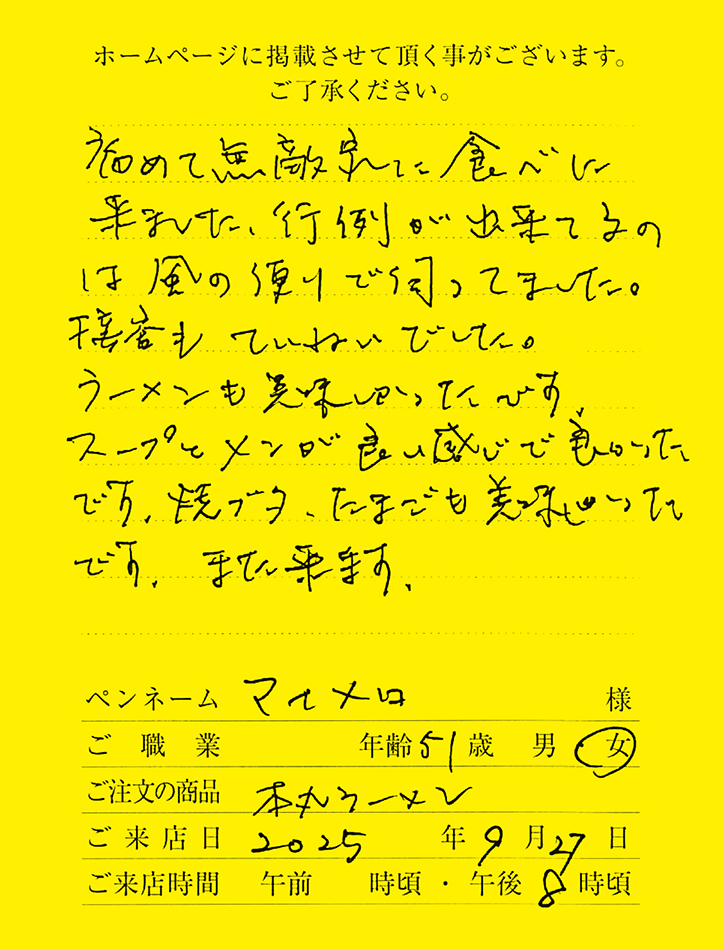 ホームページに掲載させて頂く事がございます。
ご了承ください。
初めて無敵家さんに食べに
来ました、行列が出来てるの
は風の便りで伺ってました。
接客もていねいでした。
ラーメンも美味しかったです。
スープとメンが良い感じで良かった
です。焼ブタ、たまごも美味しかった
です。また来ます。
ペンネーム マイメロ 様
ご職業 年齢51歳 男 女
ご注文の商品 本丸ラーメン
ご来店日 2025年9月27日
ご来店時間 午前 時頃・午後8時頃